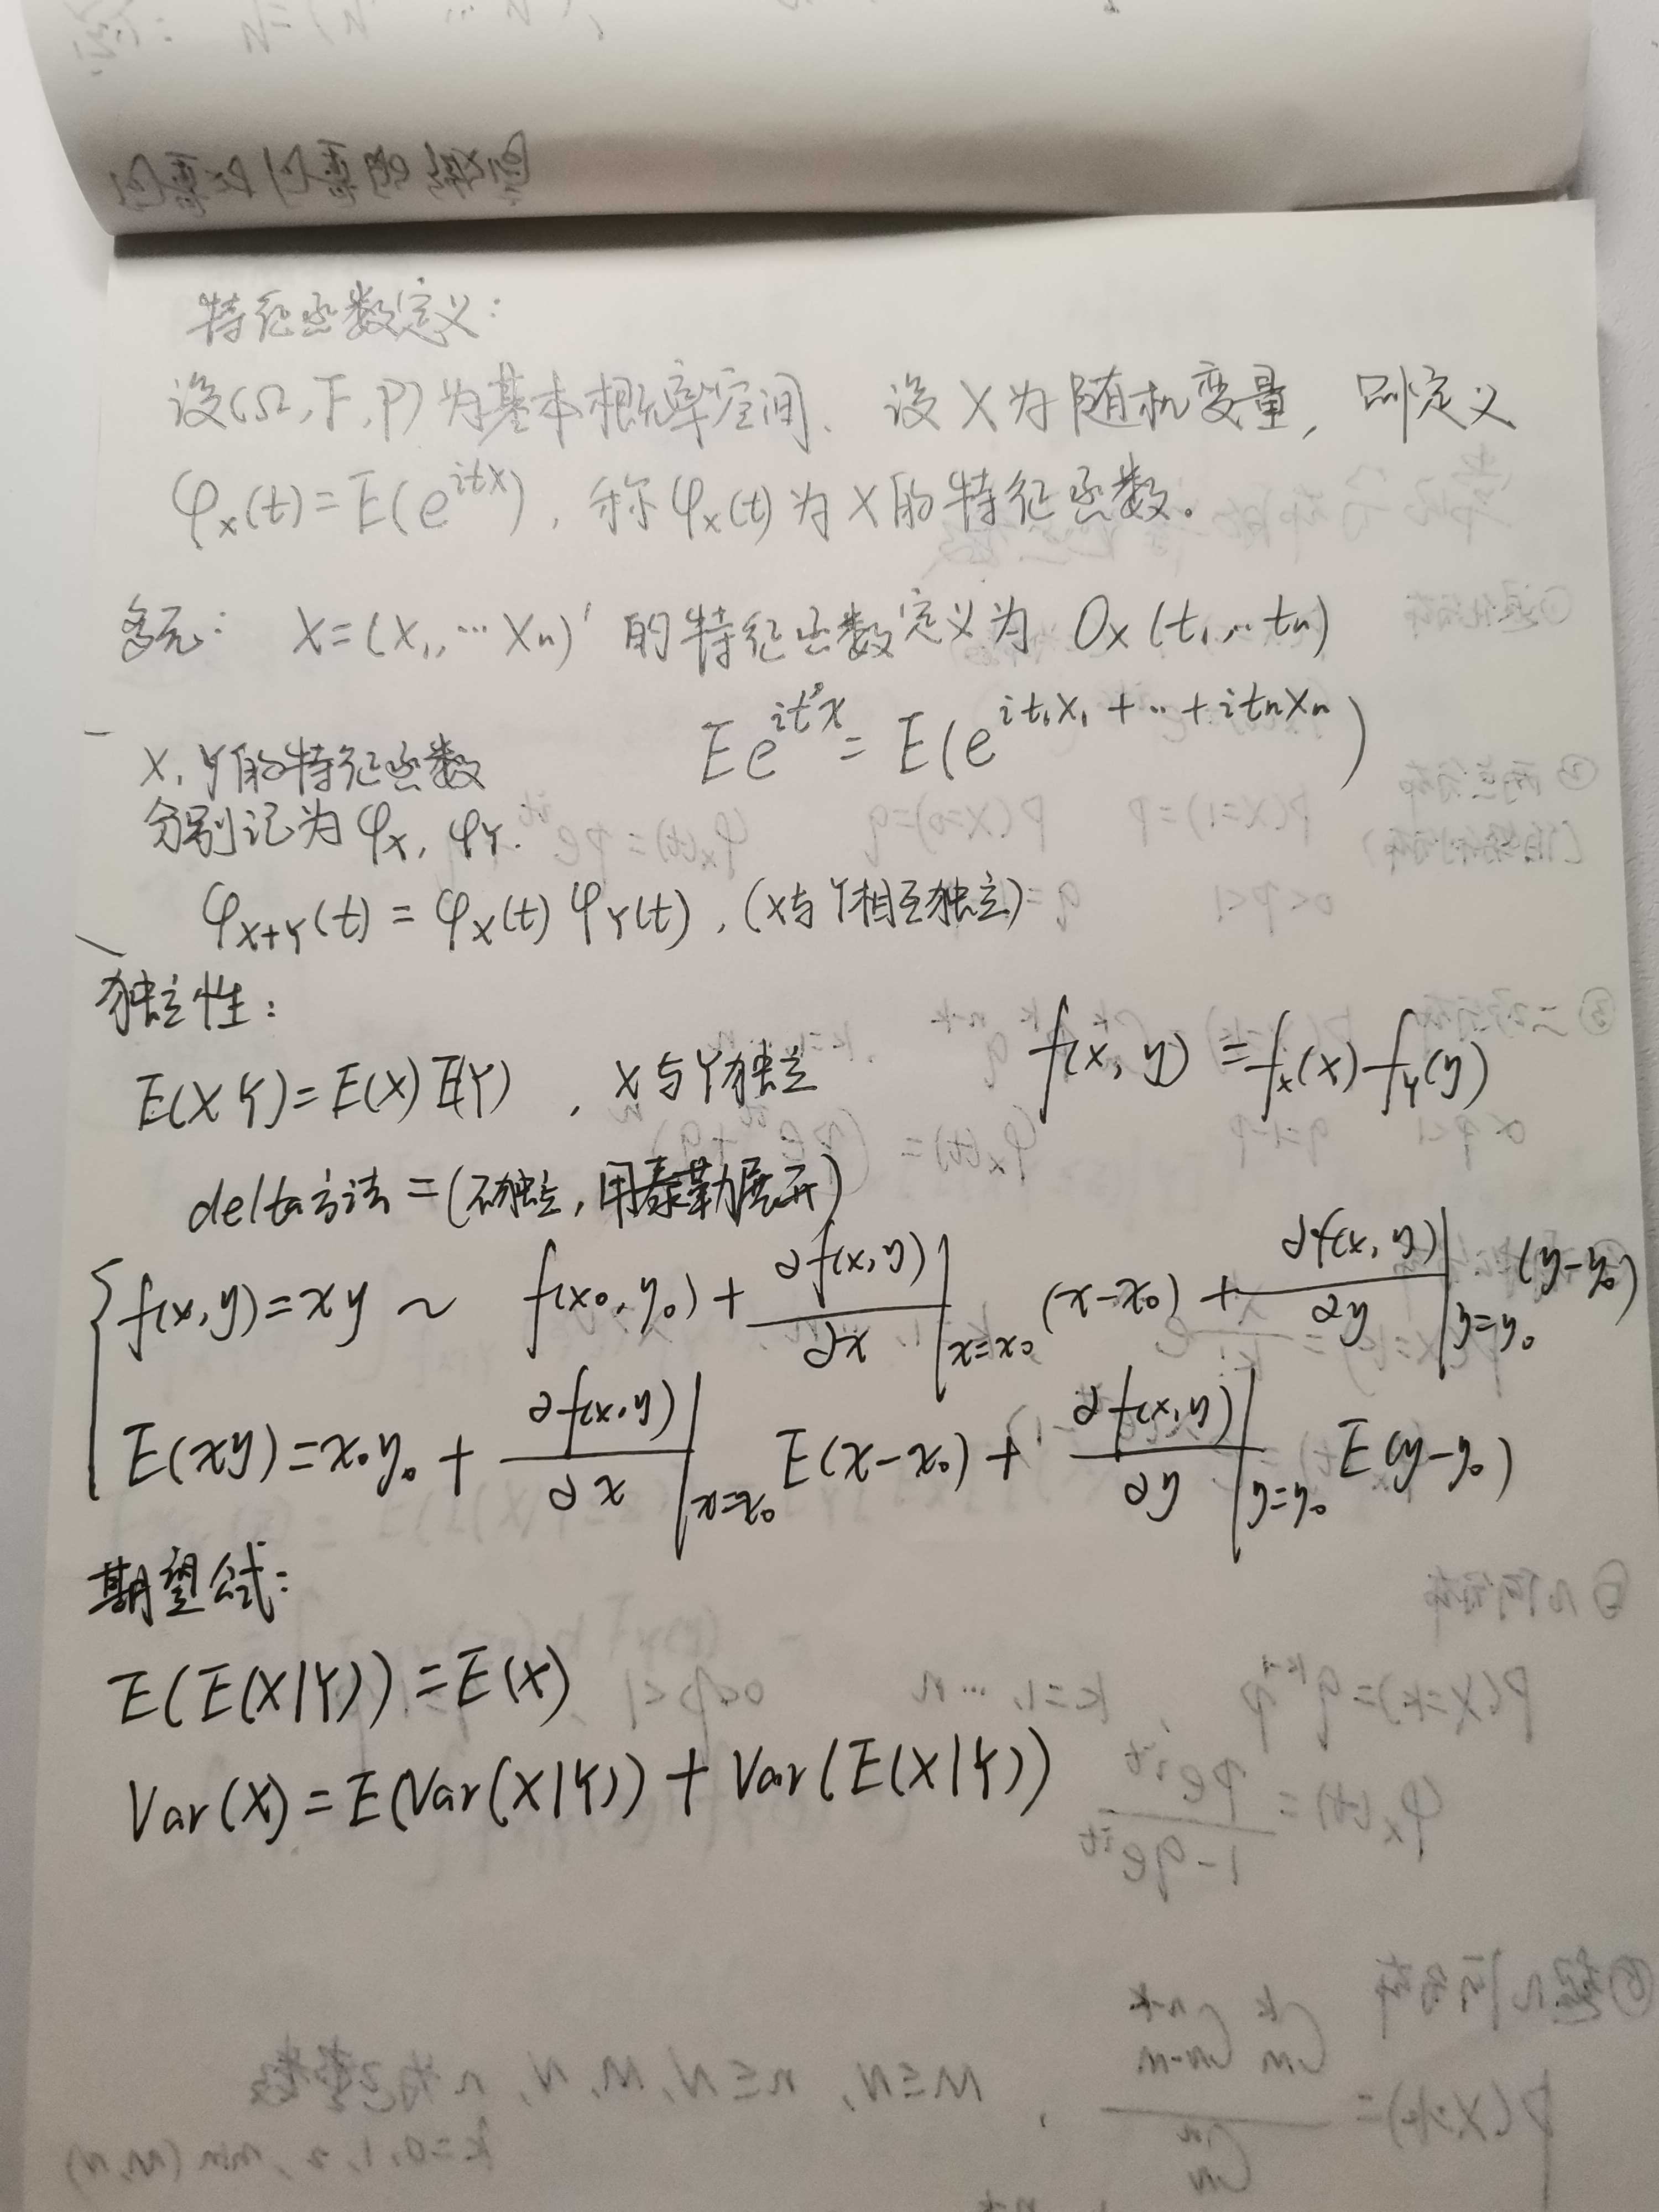 特征函数定义:
设(Ω, F, P)为基本概率空间. 设X为随机变量, 则定义
φx(t)=E(e^{itX}), 称φx(t)为X的特征函数。
多元: X=(X₁,…Xn)' 的特征函数定义为 Ox(t₁,..tn)
Ee^{it'x}=E(e^{it₁X₁+…+itnXn})
X, Y的特征函数
分别记为φX, φY.
φX+Y(t)=φX(t)φY(t), (X与Y相互独立)
独立性:
E(XY)=E(X)E(Y), X与Y独立 f(x,y)=fx(x)fY(y)
delta方法=(不独立,用泰勒展开)
f(x,y)=xy ~ f(x₀,y₀)+∂f(x,y)/∂x|x=x₀(x-x₀)+∂f(x,y)/∂y|y=y₀(y-y₀)
E(xy)=x₀y₀+∂f(x,y)/∂x|x=x₀E(x-x₀)+∂f(x,y)/∂y|y=y₀E(y-y₀)
期望公式:
E(E(X|Y))=E(X)
Var(X)=E(Var(X|Y))+Var(E(X|Y))